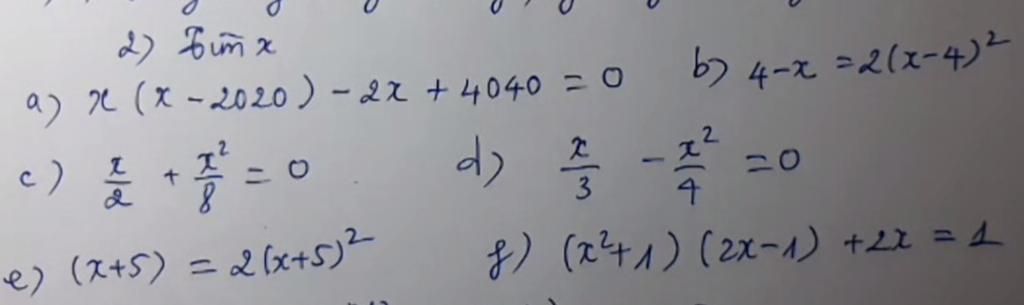 2) Tìm x
a) x (x - 2020) - 2x + 4040 = 0 b) 4-x = 2(x-4)²
c) x/2 + x²/8 = 0 d) x/3 - x²/4 = 0
e) (x+5) = 2(x+5)² f) (x²+1) (2x-1) +2x = 1